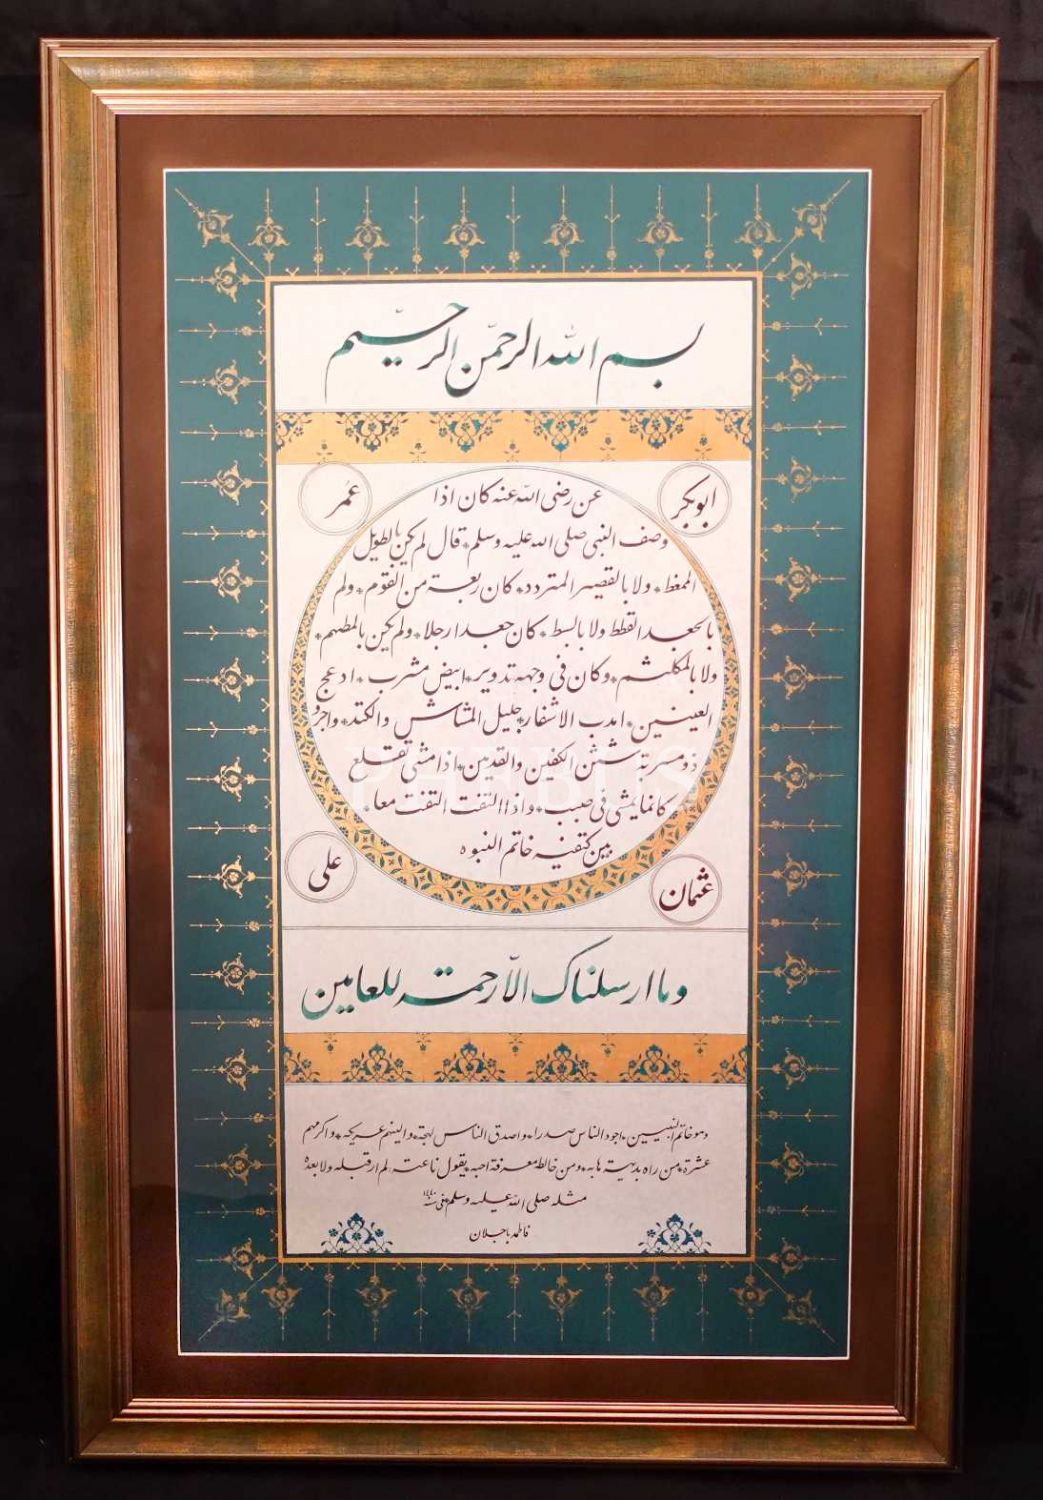 بسم الله الرحمن الرحيم
ابوبكر
عمر
عن رضى الله عنه كان اذا
وصف النبى صلى الله عليه وسلم قال لم يكن بالطويل
الممغط ولا بالقصير المتردد كان ربعة من القوم ولم
بالجعد القطط ولا بالسبط كان جعدا رجلا ولم يكن بالمطهم
ولا بالمكلثم وكان فى وجهه تدوير ابيض مشرب ادعج
العينين اهدب الاشفار جليل المشاش والكتد واجرد
ذو مسربة شثن الكفين والقدمين اذا مشى تقلع
كانما يمشى فى صبب واذا التفت التفت معا
بين كتفيه خاتم النبوه
عثمان
على
وما ارسلناك الا رحمة للعالمين
وهو خاتم النبيين اجود الناس صدرا واصدق الناس لهجة والينهم عريكة واكرمهم
عشرة من راه بديهة هابه ومن خالطه معرفة احبه يقول ناعته لم ار قبله ولا بعده
مثله صلى الله عليه وسلم فى سنة
فاطمه باجلان